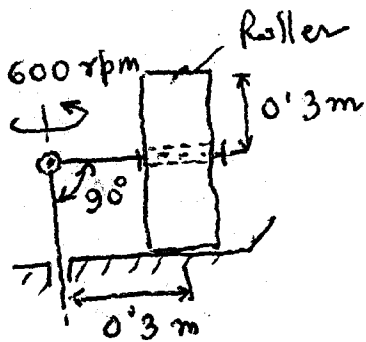 Roller
600 rpm
0.3 m
90°
0.3 m